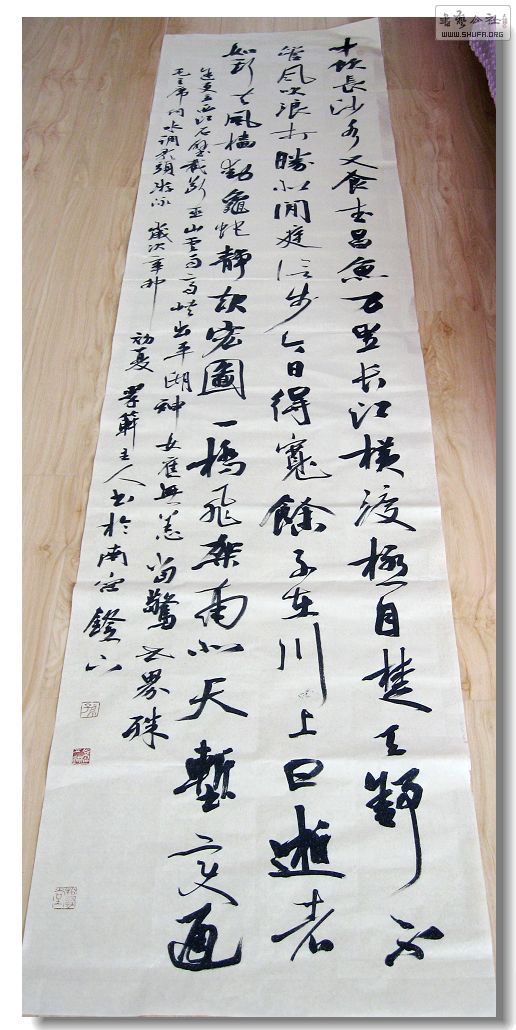 書藝公社
WWW.SHUFA.ORG
才飲長沙水又食武昌魚万里长江横渡極目楚天舒不
管風吹浪打勝似閒庭信步今日得寬餘子在川上曰逝者
如斯夫風檣動龜蛇靜起宏圖一橋飛架南北天塹变通
途更立西江石壁截断巫山雲雨高峡出平湖神女應無恙當驚世界殊
毛主席詞水調歌頭游泳 歲次辛卯
初夏 主人书於南窗鐙下